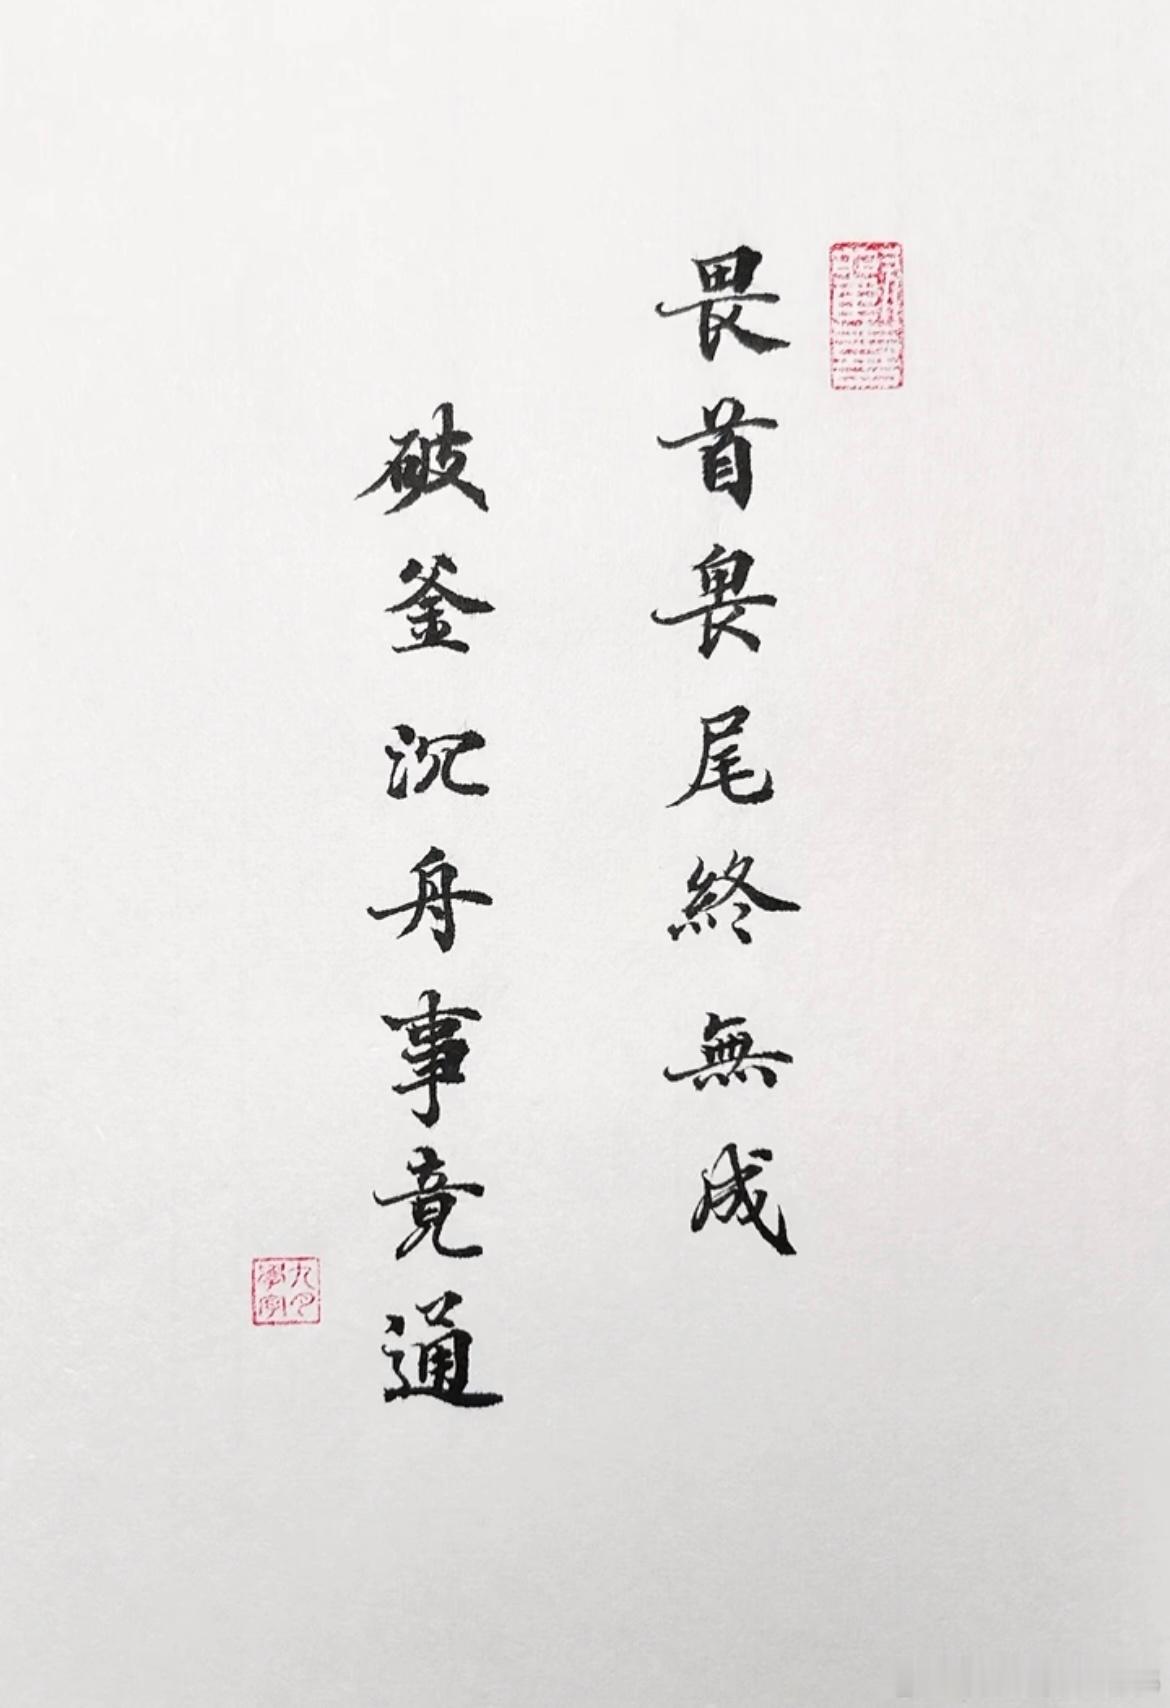 畏首畏尾終無成
破釜沉舟事竟通